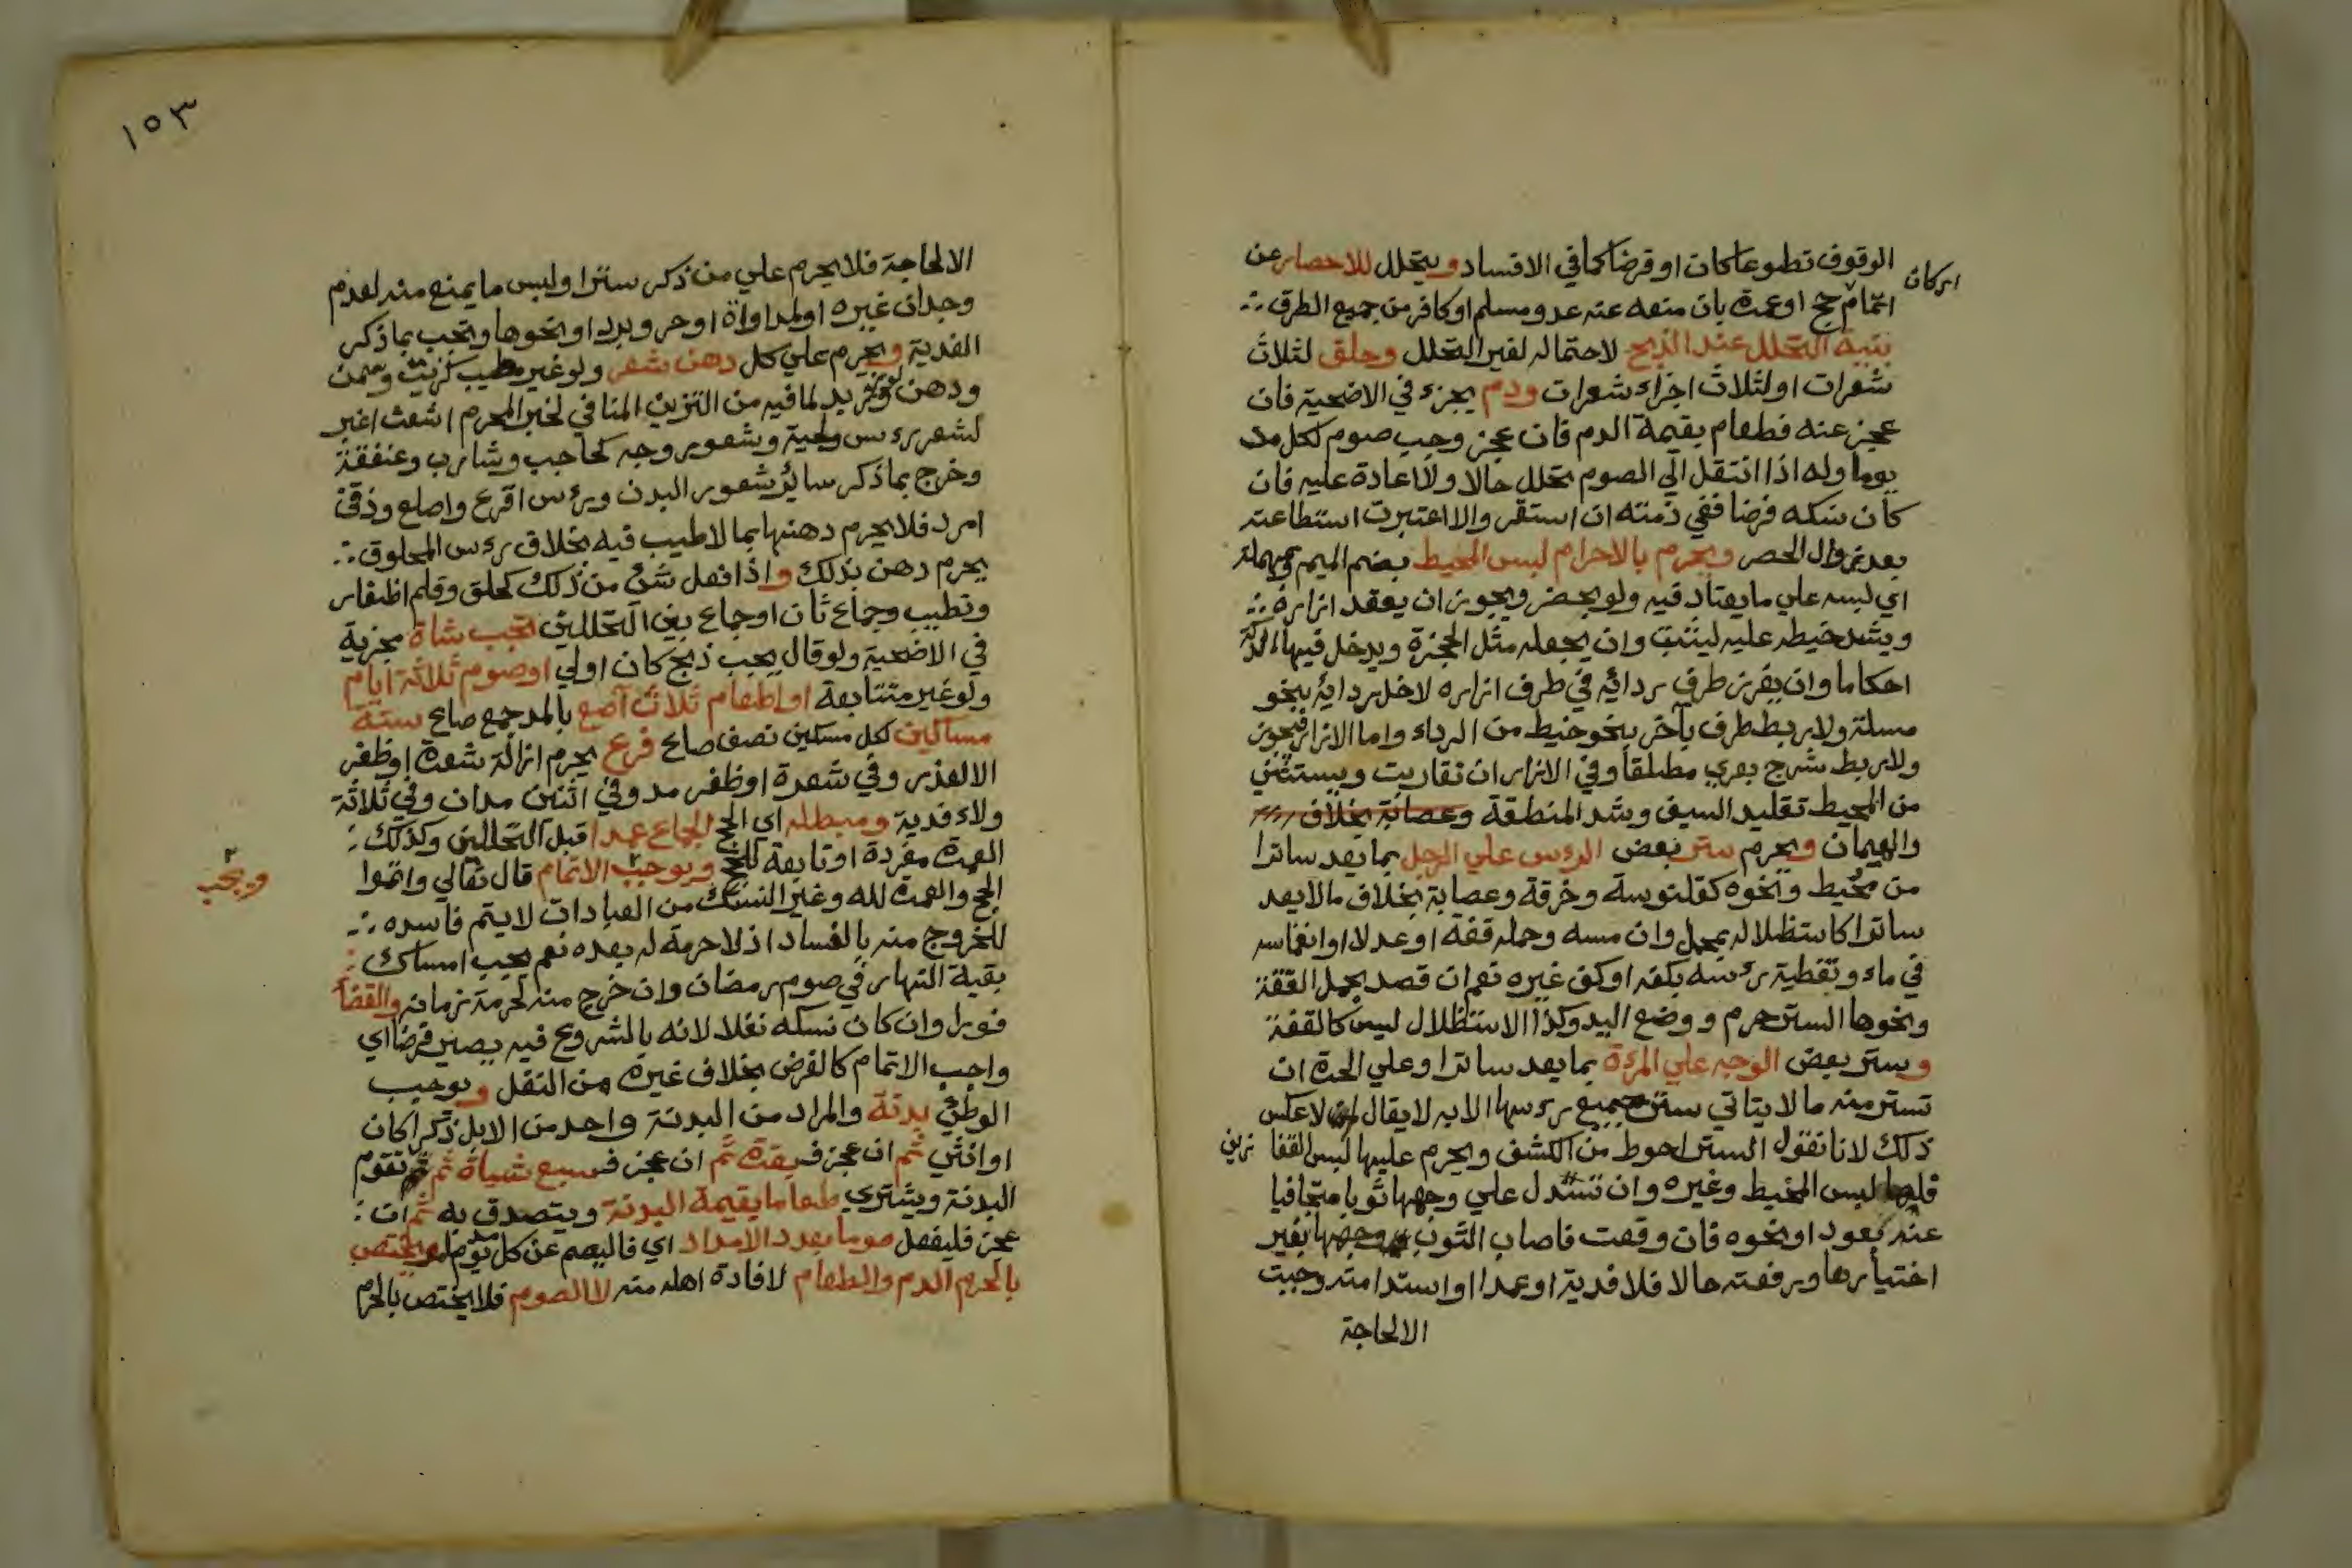 الوقوف تطوعا كان او فرضا كما في الافساد ويتحلل للاحصار عن
اركان
اتمام حج او عمرة بان منعه عنه عدو مسلم او كافر من جميع الطرق
بنية التحلل عند الذبح لاحتماله لغير التحلل وحلق لثلاث
شعرات او لثلاث اجزاء شعرات ودم يجزء في الاضحية فان
عجز عنه فطعام بقيمة الدم فان عجز وجب صوم لكل مد
يوما وله اذا انتقل الي الصوم تحلل حالا ولا اعادة عليه فان
كان نسكه فرضا ففي ذمته ان استقر والا اعتبرت استطاعته
بعد زوال الحصر ويحرم بالاحرام لبس المحيط بضم الميم وبمهملة
اي لبسه علي ما يعتاد فيه ولو بحضر ويجوز ان يعقد ازاره
ويشد خيطه عليه ليثبت وان يجعله مثل الحجزة ويدخل فيها التكة
احكاما وان يغرز طرف ردائه في طرف ازاره لا خل ردائه بنحو
مسلة ولا ربط طرف بآخر بنحو خيط من الرداء واما الازار فيجوز
ولا ربط شرج بعري مطلقا وفي الازار ان تقاربت ويستثني
من المحيط تقليد السيف وشد المنطقة وعصابة بخلاف
والهميان ويحرم ستر بعض الرءس علي الرجل بما يعد ساترا
من محيط ونحوه كقلنوسة وخرقة وعصابة بخلاف ما لا يعد
ساترا كاستظلاله بمحمل وان مسه وحمله قفة او عدلا او انغماسه
في ماء وتغطية رءسه بكفه او كف غيره نعم ان قصد بحمل القفة
ونحوها الستر حرم ووضع اليد وكذا الاستظلال ليس كالقفة
وستر بعض الوجه علي المرءة بما يعد ساترا وعلي الحرة ان
تستر منه ما لا يتاتي ستر جميع رءسها الا به لا يقال لم لا عكس
ذلك لانا نقول الستر احوط من الكشف ويحرم عليها لبس القفا زين
فلها لبس المخيط وغيره وان تسدل علي وجهها ثوبا متجافيا
عنه بعود او نحوه فان وقعت فاصاب الثوب وجهها بغير
اختيارها ورفعته حالا فلا فدية او عمدا او استدامته وجبت
الا لحاجة
١٥٣
الا لحاجة فلا يحرم علي من ذكر سترا ولبس ما يمنع منه لعدم
وجدان غيره او لمداواة او حر وبرد او نحوها وتجب بما ذكر
الفدية ويحرم علي كل دهن شعر ولو غير مطيب كزيت وسمن
ودهن لوز وزبد لما فيه من التزين المنافي لخبر المحرم اشعث اغبر
لشعر رءس ولحية وشعور وجه كحاجب وشارب وعنفقة
وخرج بما ذكر سائر شعور البدن ورءس اقرع واصلع وذقن
امرد فلا يحرم دهنها بما لا طيب فيه بخلاف رءس المحلوق
يحرم دهن بذلك واذا فعل شئ من ذلك كحلق وقلم اظفار
وتطيب وجماع ثان او جماع بين التحللين تجب شاة مجزية
في الاضحية ولو قال يجب ذبح كان اولي او صوم ثلاثة ايام
ولو غير متتابعة او اطعام ثلاث آصع بالمد جمع صاع ستة
مساكين لكل مسكين نصف صاع فرع يحرم ازالة شعرة او ظفر
الا لعذر وفي شعرة او ظفر مد وفي اثنين مدان وفي ثلاثة
ولاء فدية ومبطله اي الحج الجماع عمدا قبل التحللين وكذلك
العمرة مفردة او تابعة للحج ويوجب الاتمام قال تعالي واتموا
ويجب
الحج والعمرة لله وغير النسك من العبادات لا يتم فاسده
للخروج منه بالفساد اذ لا حرمة له بعده نعم يجب امساك
بقية النهار في صوم رمضان وان خرج منه لحرمة زمانه والقضأ
فورا وان كان نسكه نفلا لانه بالشروع فيه يصير فرضا اي
واجب الاتمام كالفرض بخلاف غيره من النفل ويوجب
الوطئ بدنة والمراد من البدنة واحد من الابل ذكرا كان
او انثي ثم ان عجز فبقرة ثم ان عجز فسبع شياة ثم تقوم
البدنة ويشتري طعاما بقيمة البدنة ويتصدق به ثم ان
عجز فليفعل صوما بعدد الامداد اي فاليصم عن كل مد يوما ويختص
بالحرم الدم والطعام لافادة اهله منه لا الصوم فلا يختص بالحرم